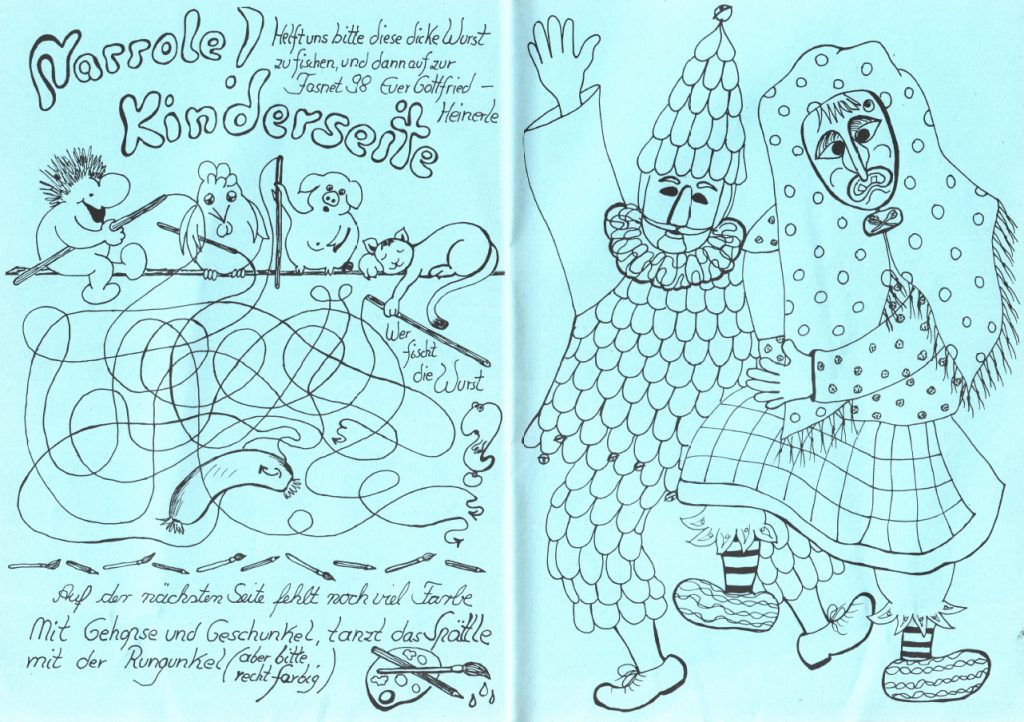 Narrole!
Kinderseite
Helft uns bitte diese dicke Wurst
zu fischen, und dann auf zur
Fasnet 98 Euer Gottfried –
Heinerle
Wer
fischt
die
Wurst
Auf der nächsten Seite fehlt noch viel Farbe
Mit Gehopse und Geschunkel, tanzt das Spättle
mit der Rungunkel (aber bitte
recht farbig)